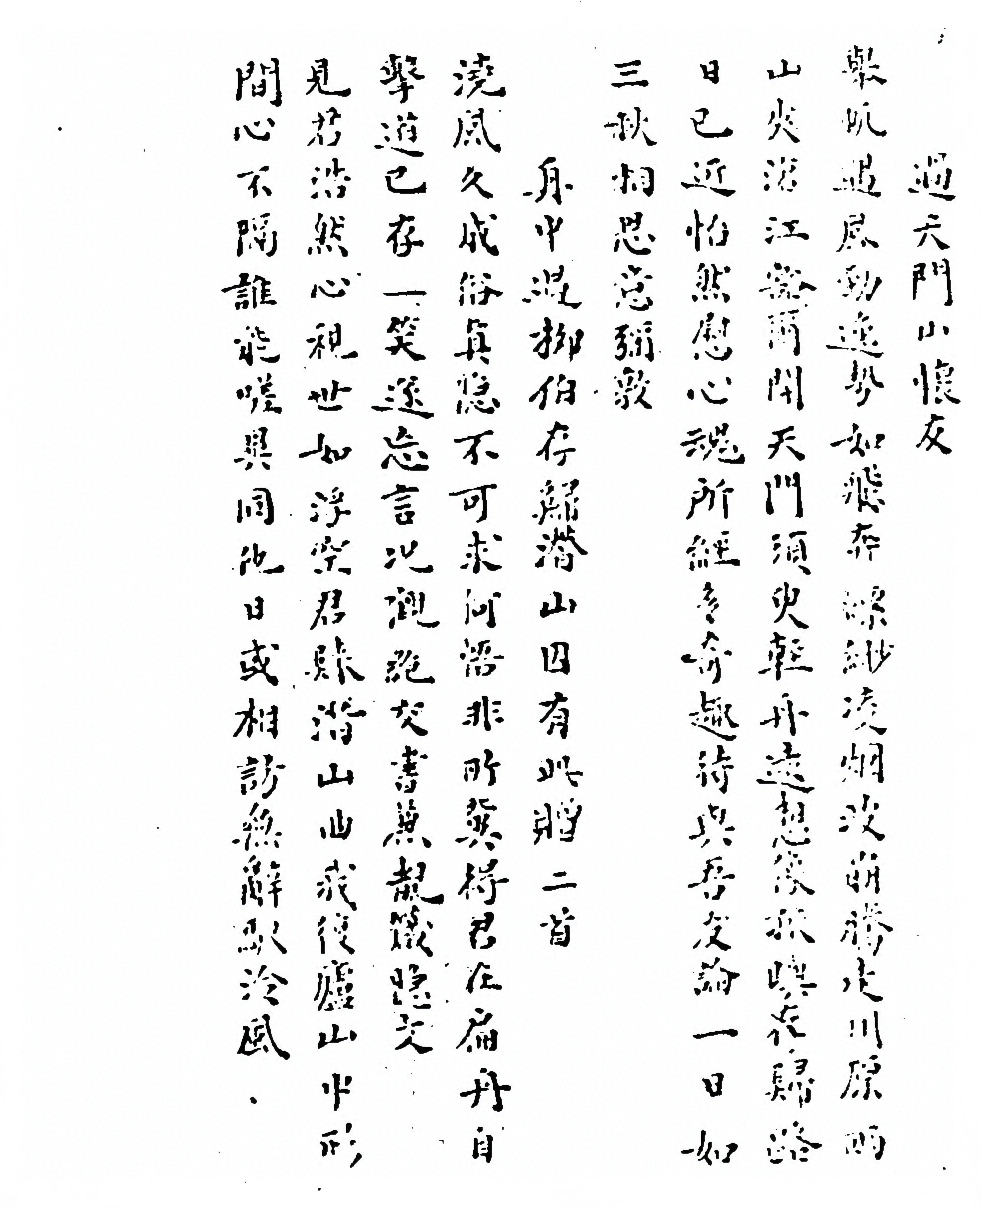 過天門山懷友
舉帆遇風勁逸勢如飛奔縹緲凌烟波崩騰走川原兩
山夾滄江豁爾開天門須臾輕舟遠想像孤嶼存歸路
日已近怡然慰心魂所經多奇趣待與吾友論一日如
三秋相思意彌敦
舟中遇柳伯存歸潛山因有此贈二首
澆風久成俗真隱不可求何悟非所冀得君在扁舟目
擊道已存一笑遂忘言況觀絕交書兼覩箴隱文
見君浩然心視世如浮空君歸潛山曲我復廬山中形
間心不隔誰能嗟異同他日或相訪無辭馭泠風